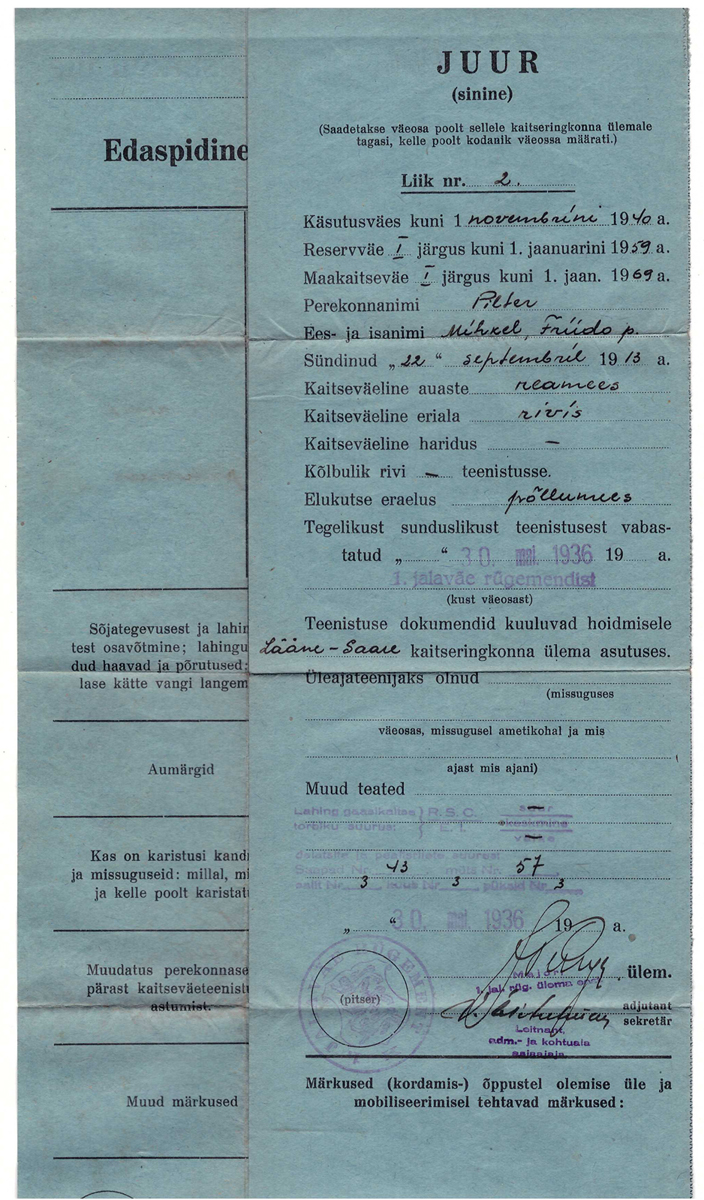 Edaspidine
Sõjategevusest ja lahin
test osavõtmine; lahingu
dud haavad ja põrutused;
lase kätte vangi langem
Aumärgid
Kas on karistusi kand
ja missuguseid: millal, mi
ja kelle poolt karistat
Muudatus perekonnase
pärast kaitseväeteenistu
astumist.
Muud märkused
JUUR
(sinine)
(Saadetakse väeosa poolt sellele kaitseringkonna ülemale
tagasi, kelle poolt kodanik väeossa määrati.)
Liik nr. 2.
Käsutusväes kuni 1 novembrini 1940 a.
Reservväe I järgus kuni 1. jaanuarini 1959 a.
Maakaitseväe I järgus kuni 1. jaan. 1969 a.
Perekonnanimi Pilter
Ees- ja isanimi Mihkel, Friido p.
Sündinud „22“ septembril 1913 a.
Kaitseväeline auaste reamees
Kaitseväeline eriala rivis
Kaitseväeline haridus —
Kõlbulik rivi — teenistusse.
Elukutse eraelus põllumees
Tegelikust sunduslikust teenistusest vabas-
tatud „ “ 30. mai. 1936 19 a.
1. jalaväe rügemendist
(kust väeosast)
Teenistuse dokumendid kuuluvad hoidmisele
Lääne-Saare kaitseringkonna ülema asutuses.
Üleajateenijaks olnud
(missuguses
väeosas, missugusel ametikohal ja mis
ajast mis ajani)
Muud teated
Lahing gaasikaitse R.S.C. suur
torbiku suurus: keskmine
väike
43 57
3 3 3
„ “ 30. mai 1936 19 a.
Major ülem.
1. jal. rüg. ülema
(pitser)
adjutant
sekretär
Leitnant.
adm.- ja kohtuala
asjaajaja
Märkused (kordamis-) õppustel olemise üle ja
mobiliseerimisel tehtavad märkused: